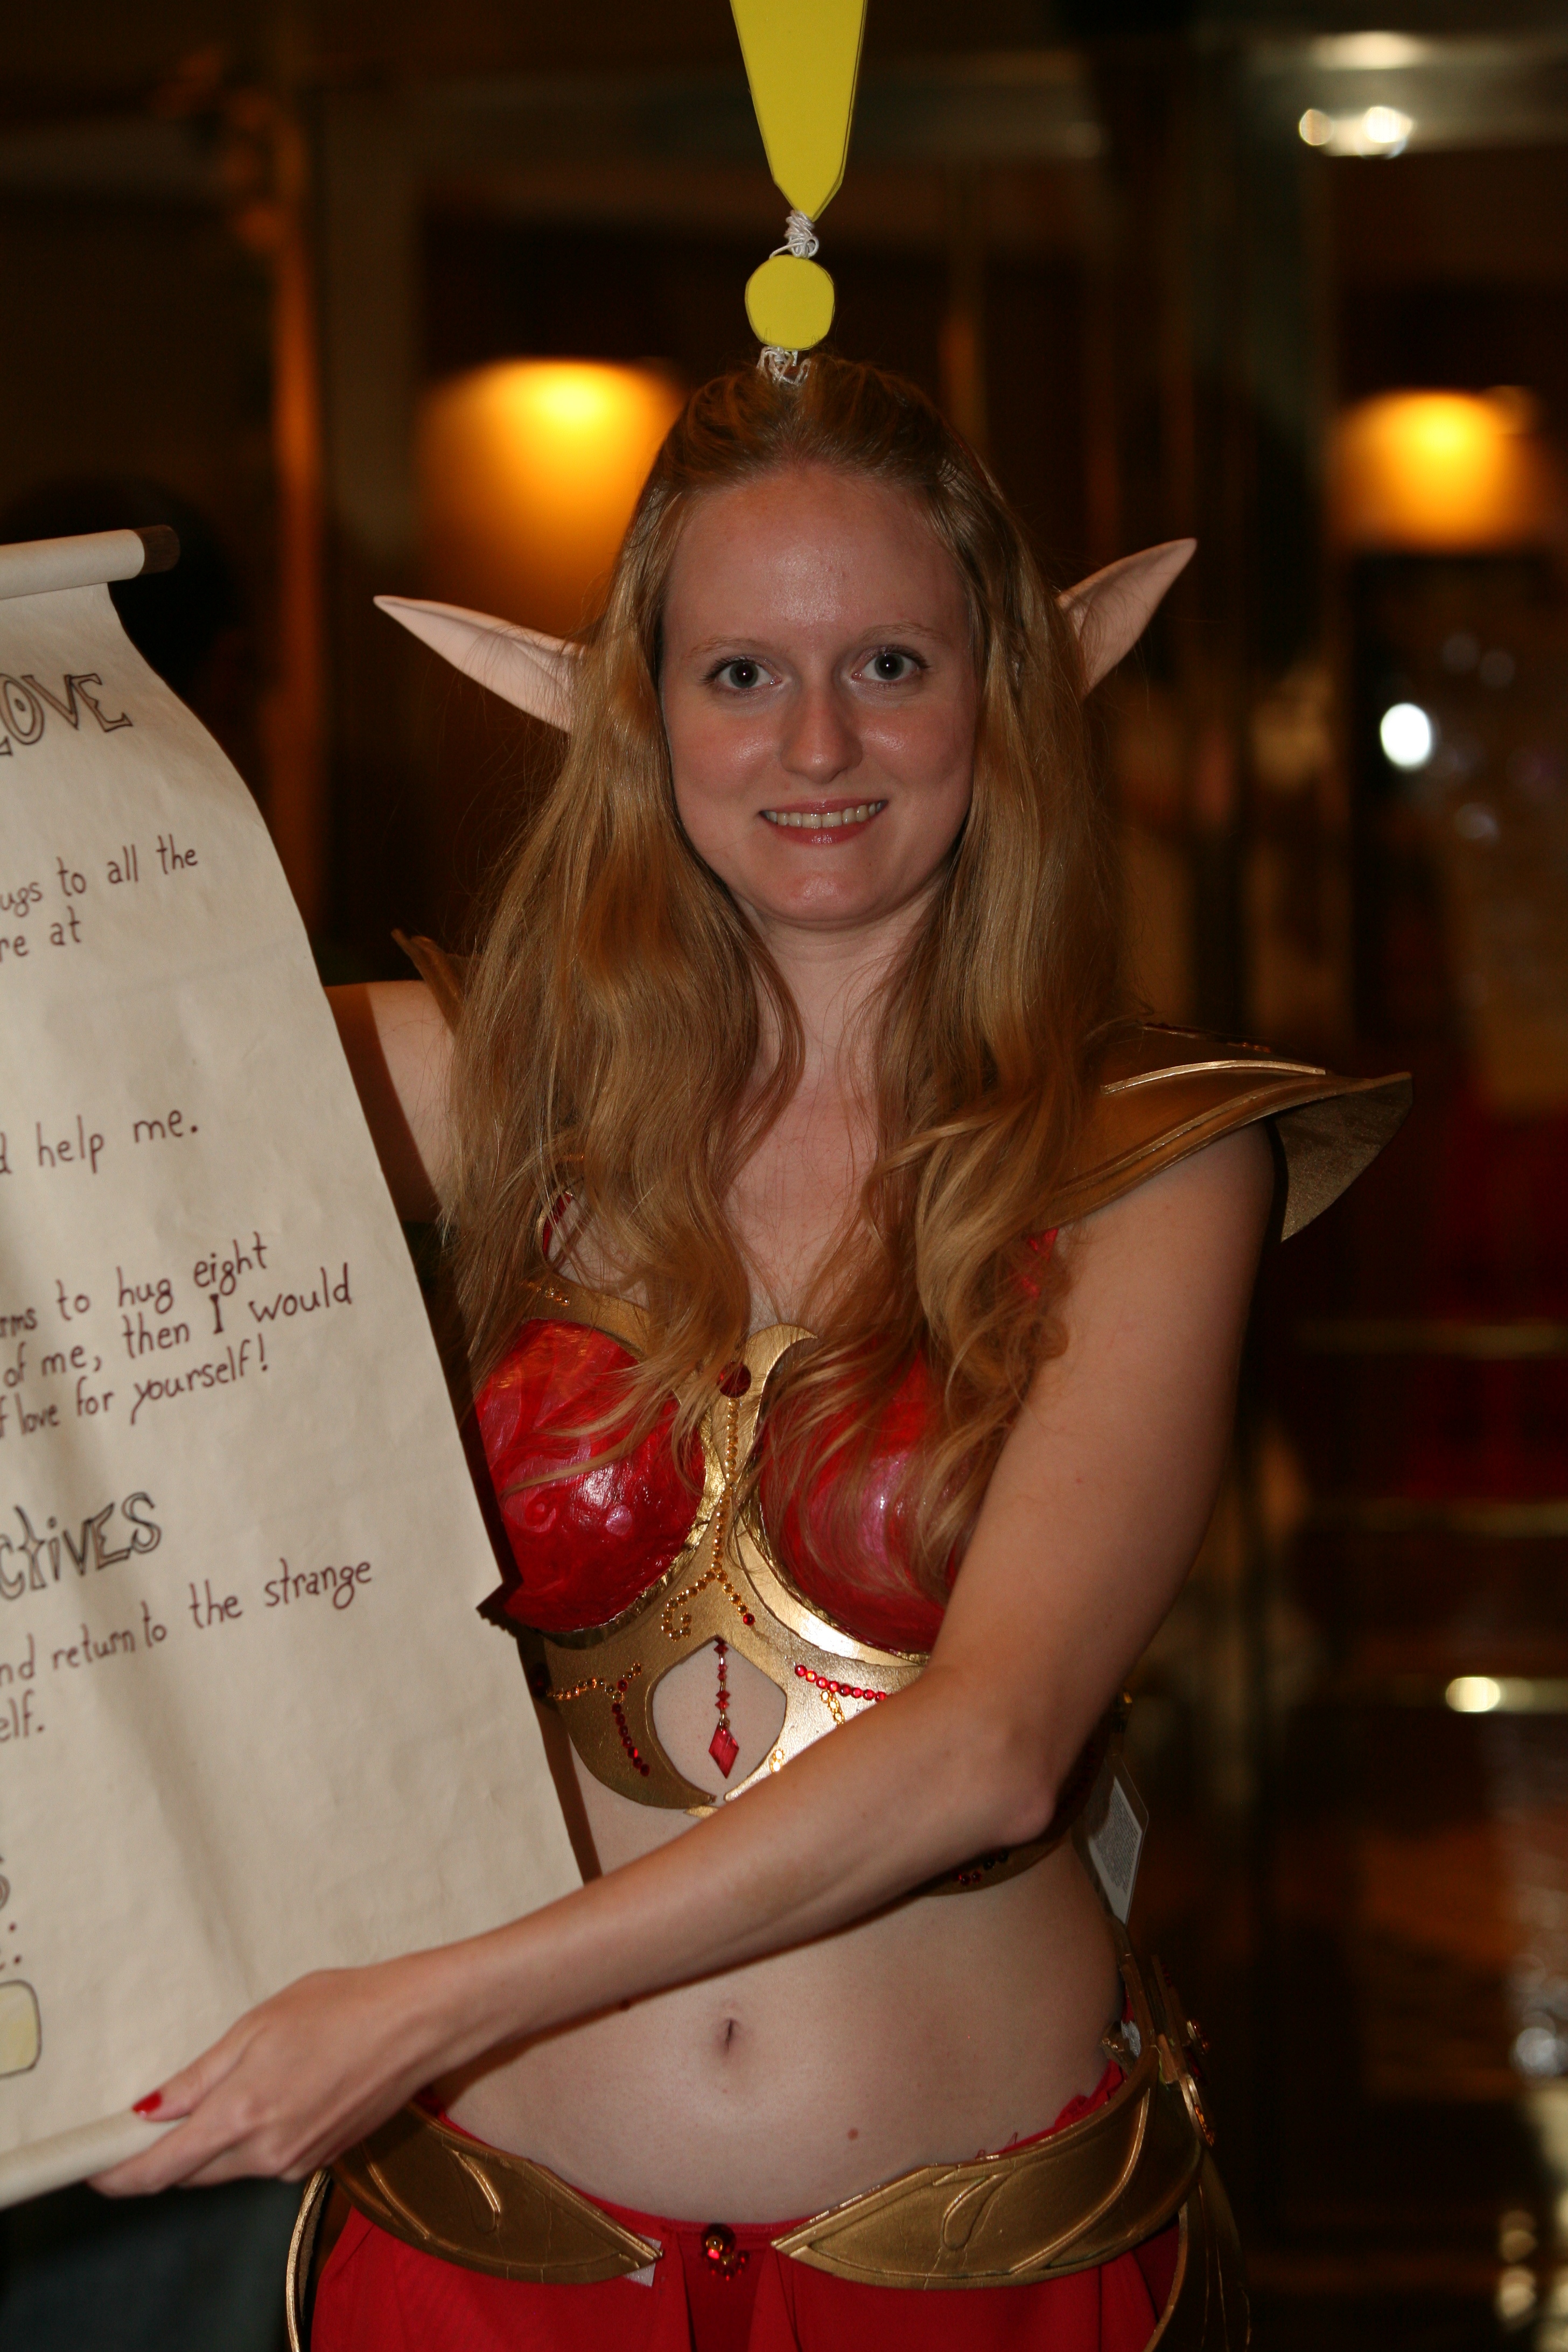 LOVE
ugs to all the
re at
d help me.
rms to hug eight
of me, then I would
f love for yourself!
ctives
nd return to the strange
elf.